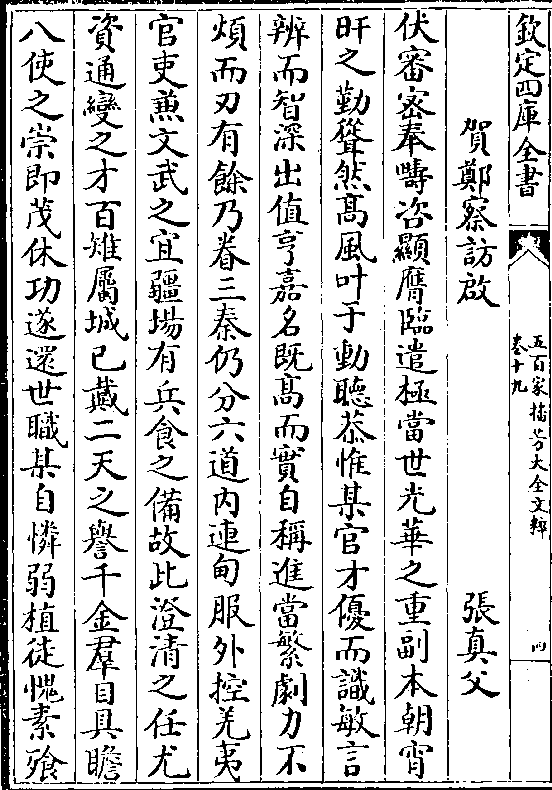 欽定四庫全書
五百家播芳大全文粹
卷十九
四
賀鄭察訪啟
張真父
伏審宻奉疇咨顯膺臨遣極當世光華之重副本朝宵
旰之勤聳然髙風叶于動聽恭惟某官才優而識敏言
辨而智深出值亨嘉名既髙而實自稱進當繁劇力不
煩而刃有餘乃眷三秦仍分六道内連甸服外控羌夷
官吏兼文武之宜疆場有兵食之備故此澄清之任尤
資通變之才百雉屬城已戴二天之譽千金羣目具瞻
八使之崇即茂休功遂還世職某自憐弱植徒愧素飱